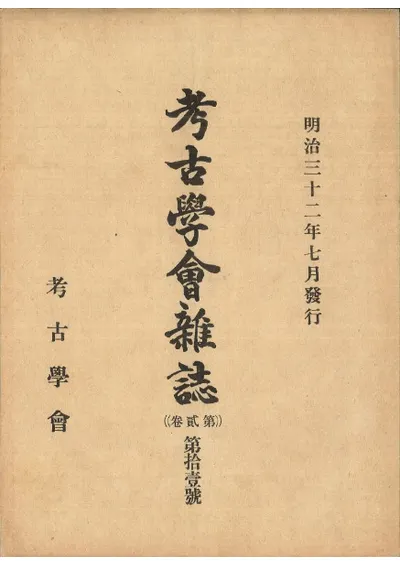 明治三十二年七月發行
考古學會雜誌
((第貳卷))
第拾壹號
考古學會